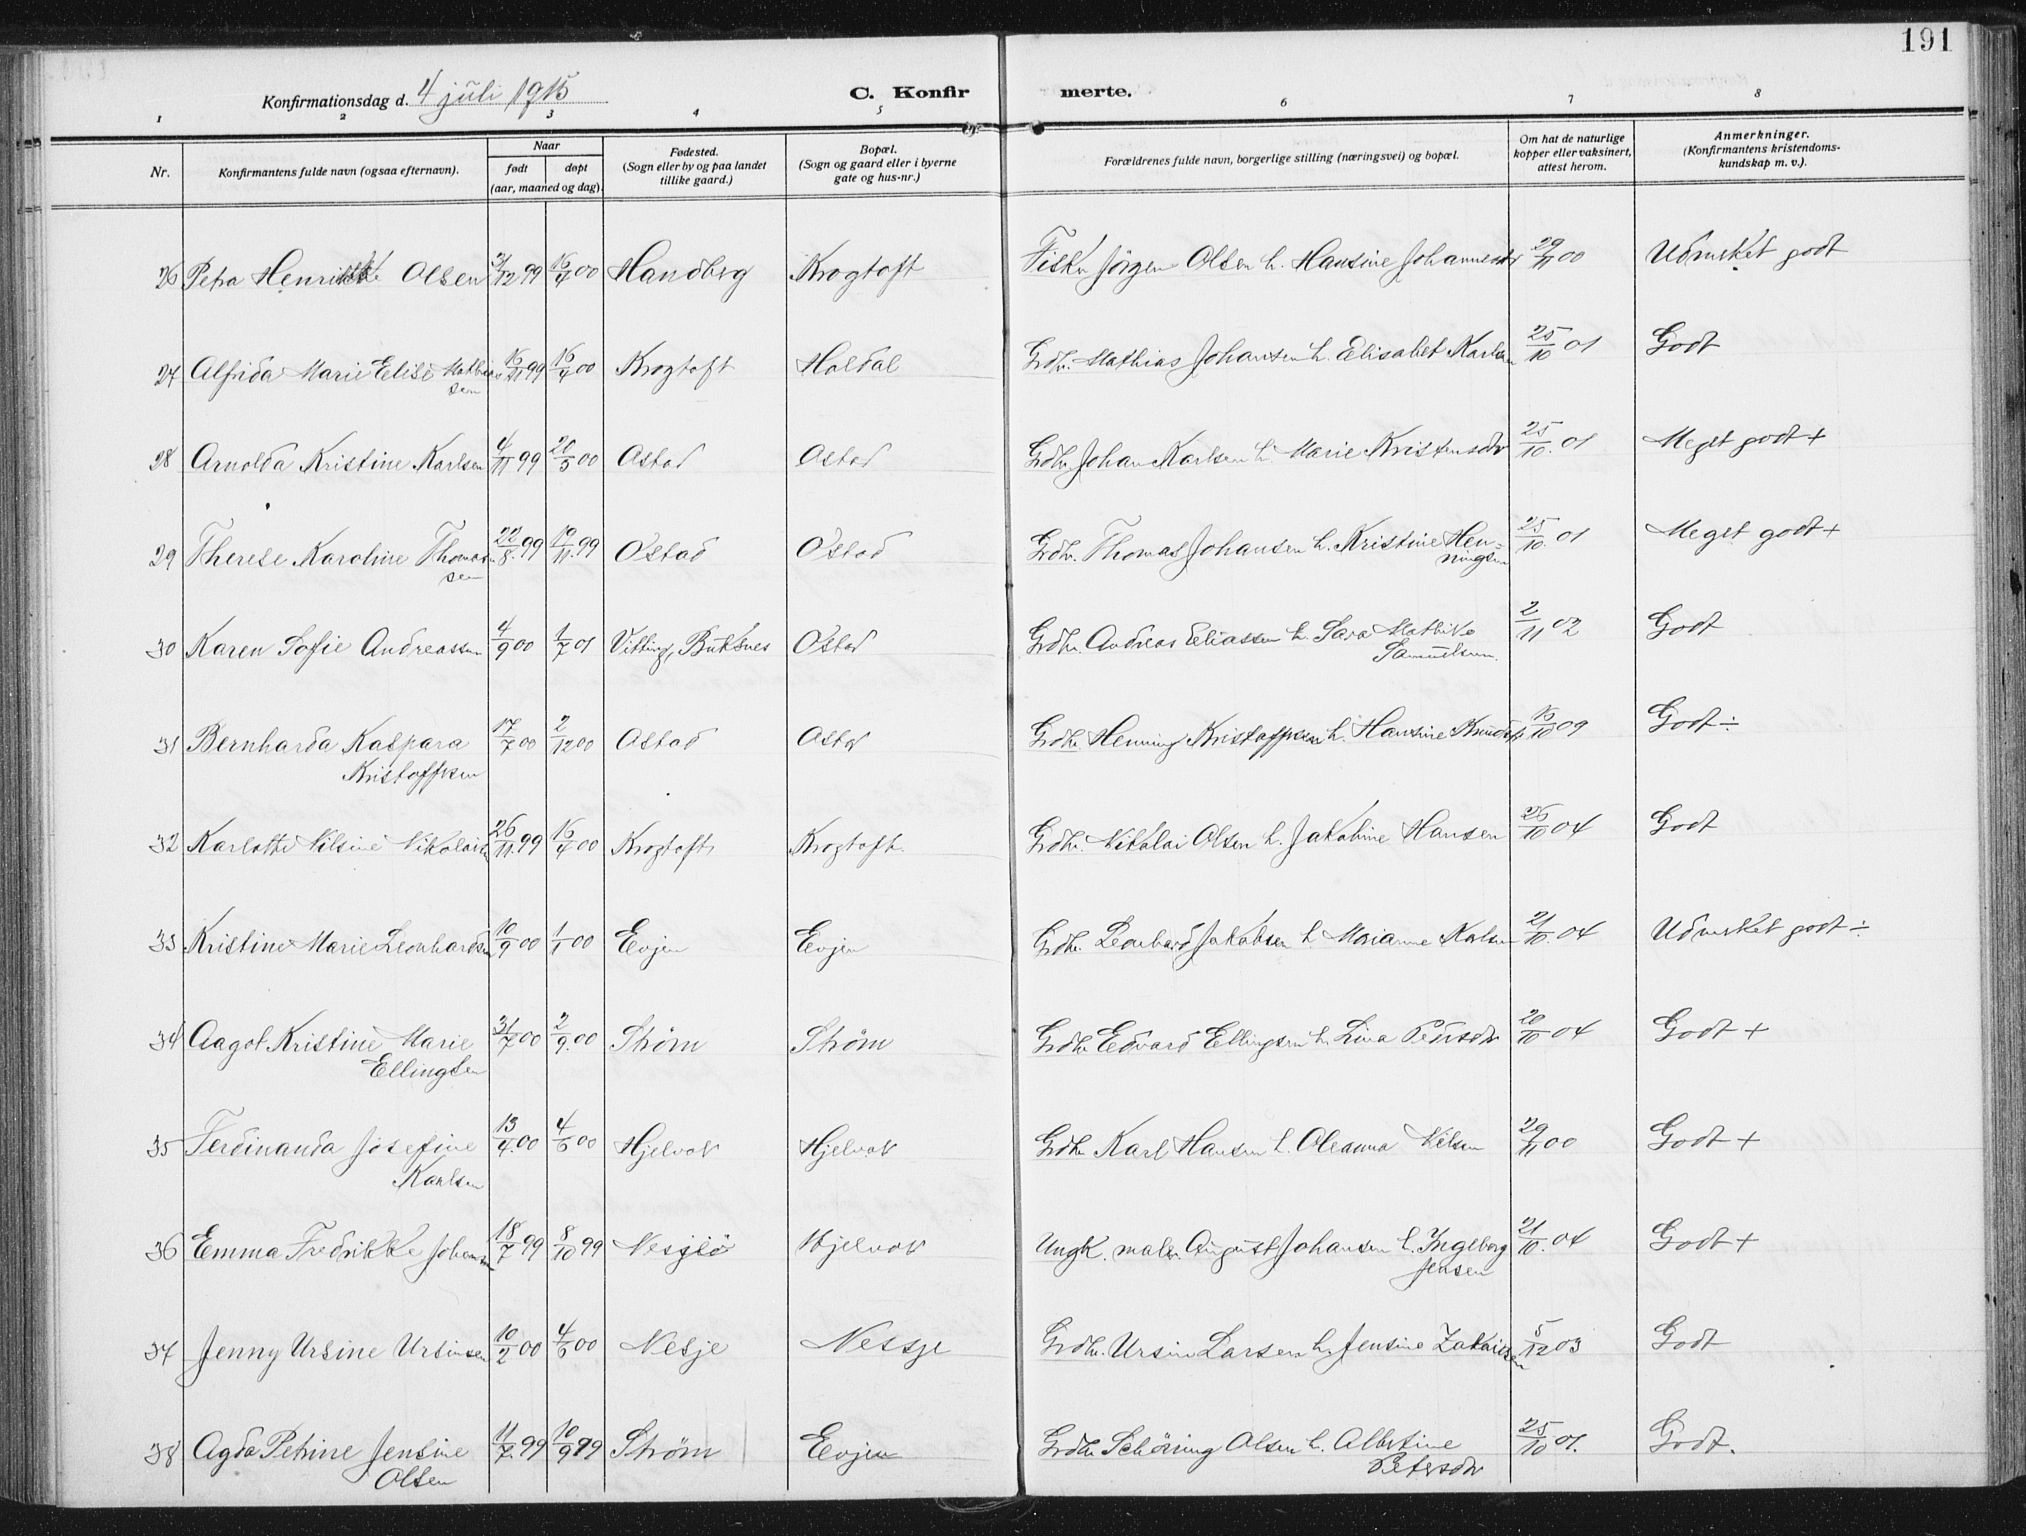 191
Konfirmationsdag d. 4 juli 1915 C. Konfir merte.
1 2 3 4 5 6 7 8
Nr. Konfirmantens fulde navn (ogsaa efternavn). Naar født døpt (aar, maaned og dag). Fødested. (Sogn eller by og paa landet tillike gaard.) Bopæl. (Sogn og gaard eller i byerne gate og hus-nr.) Forældrenes fulde navn, borgerlige stilling (næringsvei) og bopæl. Om hat de naturlige kopper eller vaksinert, attest herom. Anmerkninger. (Konfirmantens kristendoms-kundskap m. v.).
26 Petra Henrikke Olsen 31/12 99 16/4 00 Handberg Krogtoft Fisker Jörgen Olsen h. Hansine Johannesdtr 29/11 00 Udmerket godt
27 Alfrida Marie Elise Mathiassen 16/11 99 16/4 00 Krogtoft Haldal Grdbr. Mathias Johansen h. Elisabet Karlsen 25/10 01 Godt
28 Arnolda Kristine Karlsen 4/11 99 20/5 00 Ostad Ostad Grdbr Johan Karlsen h. Marie Kristensdtr 25/10. 01 Meget godt +
29 Therese Karoline Thomassen 22/8. 99 19/11. 99 Ostad Ostad Grdbr. Thomas Johansen h. Kristine Henningsen 25/10. 01 Meget godt +
30 Karen Sofie Andreassen 4/9 00 1/7 01 Vitting, Buksnes Ostad Grdbr. Andreas Eliassen h. Sara Mathike Samuelsen. 2/11 02 Godt
31 Bernharda Kaspara Kristoffersen 17/7 00 2/12 00 Ostad Ostad Grdbr. Henning Kristoffersen h. Hansine Knudsdtr 16/10 09 Godt ÷
32 Karlotte Nilsine Nikolaisen 26/11. 99 16/4 00 Krogtoft Krogtoft. Grdbr. Nikolai Olsen h. Jakobine Hansen 26/10 04 Godt
33 Kristine Marie Leonhardsen 10/9 00 1/1 00 Evjen Evjen Grdbr. Leonhard Jakobsen h Marianne Karlsen 21/10. 04 Udmerket godt ÷
34 Aagot Kristine Marie Ellingsen 31/7 00 2/9. 00 Strøm Strøm Grdbr Edvard Ellingsen h. Lina Pedersdtr 20/10 04 Godt +
35 Ferdinanda Josefine Karlsen 13/4. 00 4/6 00 Hjelvok Hjelvok Grdbr Karl Hansen h. Oleanna Nilsen 29/11 00 Godt +
36 Emma Fredrikke Johansen 18/7 99 8/10 99 Nesjlö Hjelvok Ungk. maler. August Johansen h. Ingeborg Jensen 21/10. 04 Godt +
37 Jenny Ursine Ursinsen 10/2 00 4/6 00 Nesje Nessje Grdbr. Ursin Larsen h. Jensine Zakariesen 5/12 03 Godt
38 Agda Petrine Jensine Olsen 11/7. 99 10/9 99 Strøm Evjen Grdbr Schöning Olsen h. Albertine Petersdtr 25/10 01. Godt.